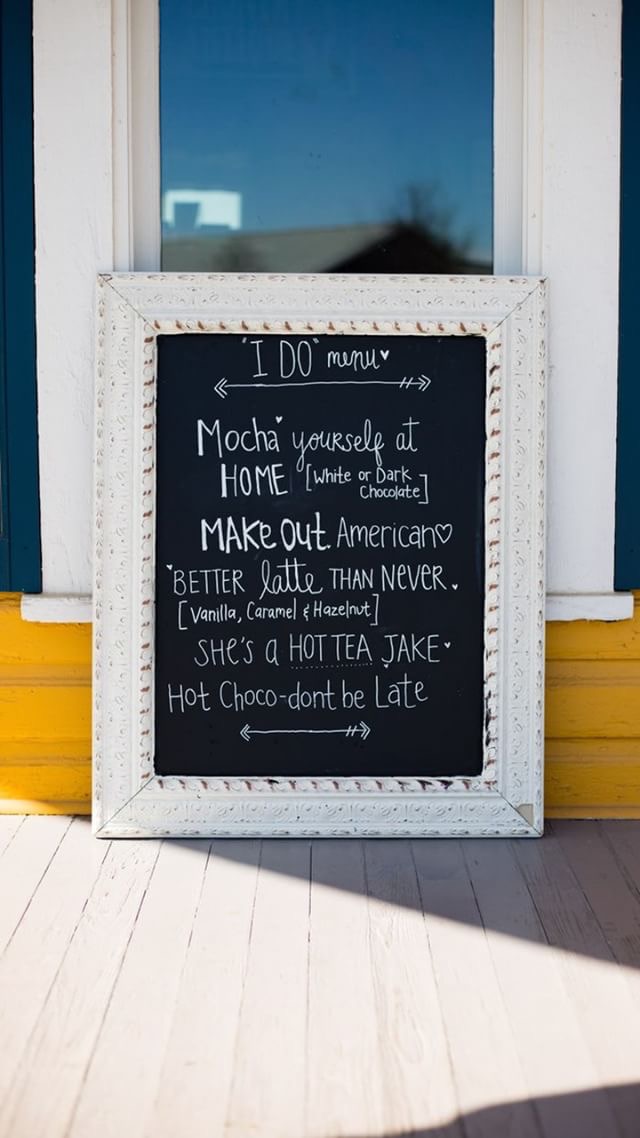 "I DO" menu
Mocha yourself at
HOME [White or Dark
Chocolate]
MAKE OUT. American
BETTER latte THAN NEVER.
[Vanilla, Caramel & Hazelnut]
SHE'S a HOT TEA JAKE
Hot Choco-dont be Late